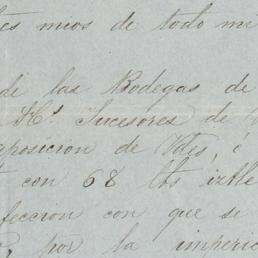 mios de todo
de las Bodegas de
Hs. Sucesores de
de Vdes, ó
con 68 lbs
feccion con que se
por la imperic